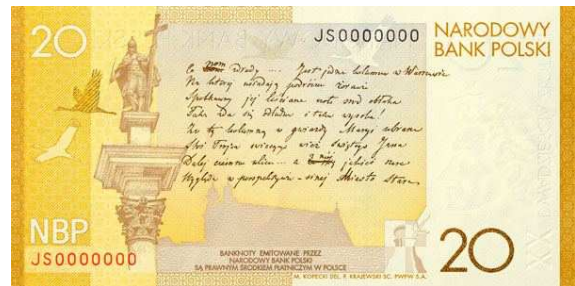 20
JS0000000
NARODOWY
BANK POLSKI
Co nam zdrady .... Jest jedna kolumna w Warszawie
Na której usiadają podróżne żurawie
Spotkawszy jej liściane wśród obłoka
Taka zda się odludna i taka wysoka!
Za tą kolumną w gwiazdy ubrana
Stoi Trójca wież świętego Jana
Dalej ciemna ulica ... a z niej jakieś
Wygląda w perspektywie sinej Miasto Stare.
NBP
JS0000000
BANKNOTY EMITOWANE PRZEZ
NARODOWY BANK POLSKI
SĄ PRAWNYM ŚRODKIEM PŁATNICZYM W POLSCE
M. KOPECKI DEL. P. KRAJEWSKI SC. PWPW S.A.
20